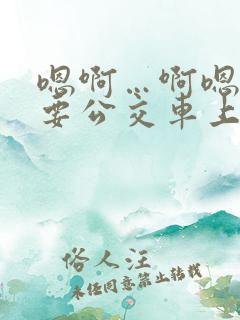 嗯啊…啊嗯
要公交车上
俗人汪
未经同意禁止转载